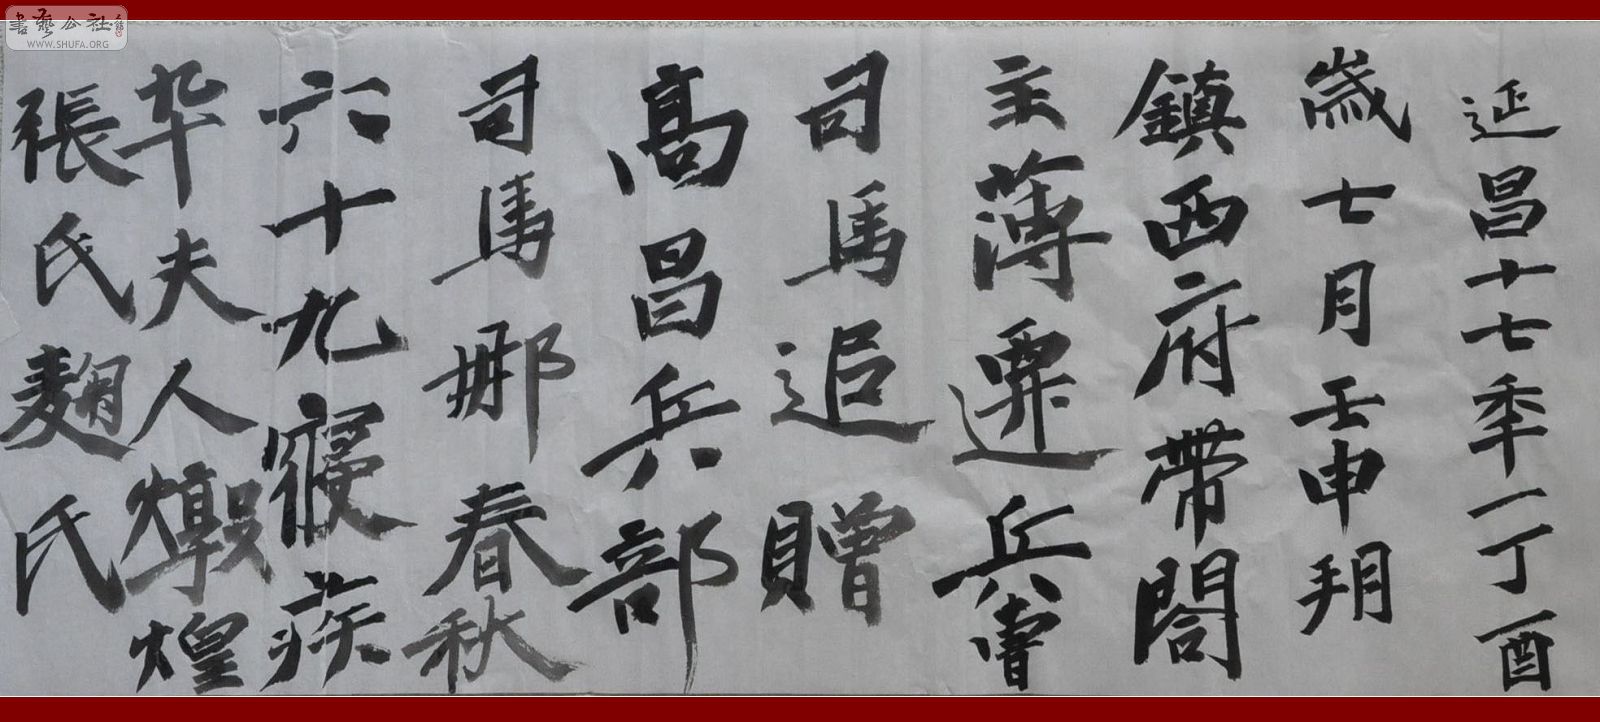 延昌十七年丁酉
歲七月壬申朔
鎮西府帶閤
主薄遷兵曹
司馬追贈
高昌兵部
司馬䣝春秋
六十九寢疾
卒夫人燉煌
張氏麴氏
書藝公社
WWW.SHUFA.ORG